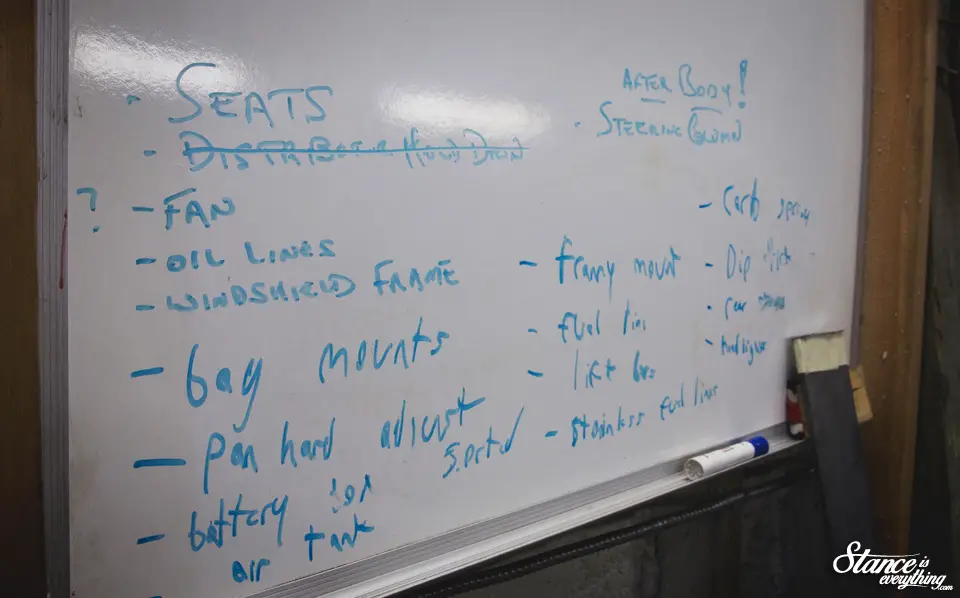 · SEATS
· DISTRIBUTOR HOLD DOWN
? - FAN
- OIL LINES
- WINDSHIELD FRAME
- bag mounts
- pan hard adjust
- battery box
air tank
AFTER BODY!
· STEERING COLUMN
- frany mount
- fuel line
- lift
- stainless fuel lines
- Carb spring
- Dip stick
- rear
Stance is
everything.com